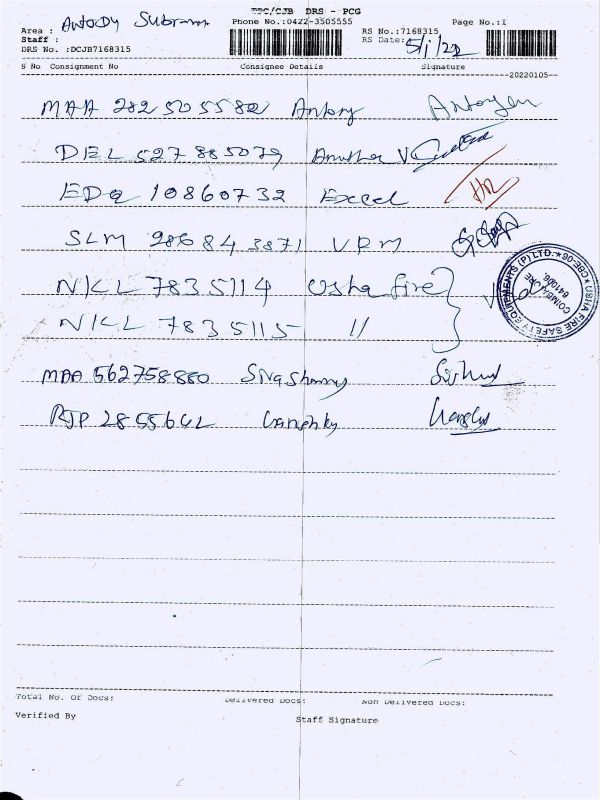 EPC/CJB DRS - PCG
Area : Antody Subram
Phone No.:0422-3505555
Page No.:1
Staff :
RS No.:7168315
DRS No. :DCJB7168315
RS Date: 5/1/22
S No Consignment No Consignee Details Signature
20220105
MAA 282505582 Antony
DEL 527885079 V
EDQ 10860732 Excel HR
SLM 986843871 VRM
NKL 7835114 Usha fire
NKL 7835115 "
USHA FIRE SAFETY EQUIPMENTS (P) LTD. * CBE-06 *
COIMBATORE 641006.
MAA 562758880
RJP 2855642
Total No. Of Docs: Delivered Docs: Non Delivered Docs:
Verified By
Staff Signature